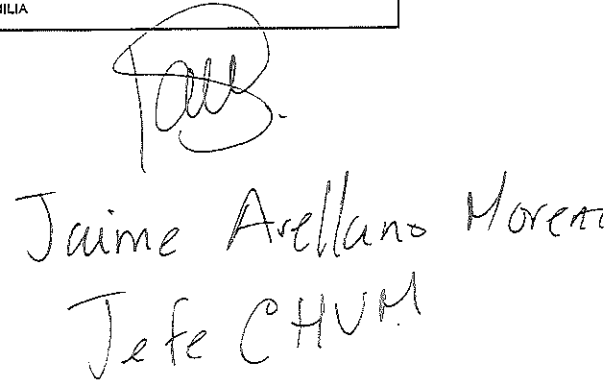 MILIA
Jaime Arellano Moreno
Jefe CHVM